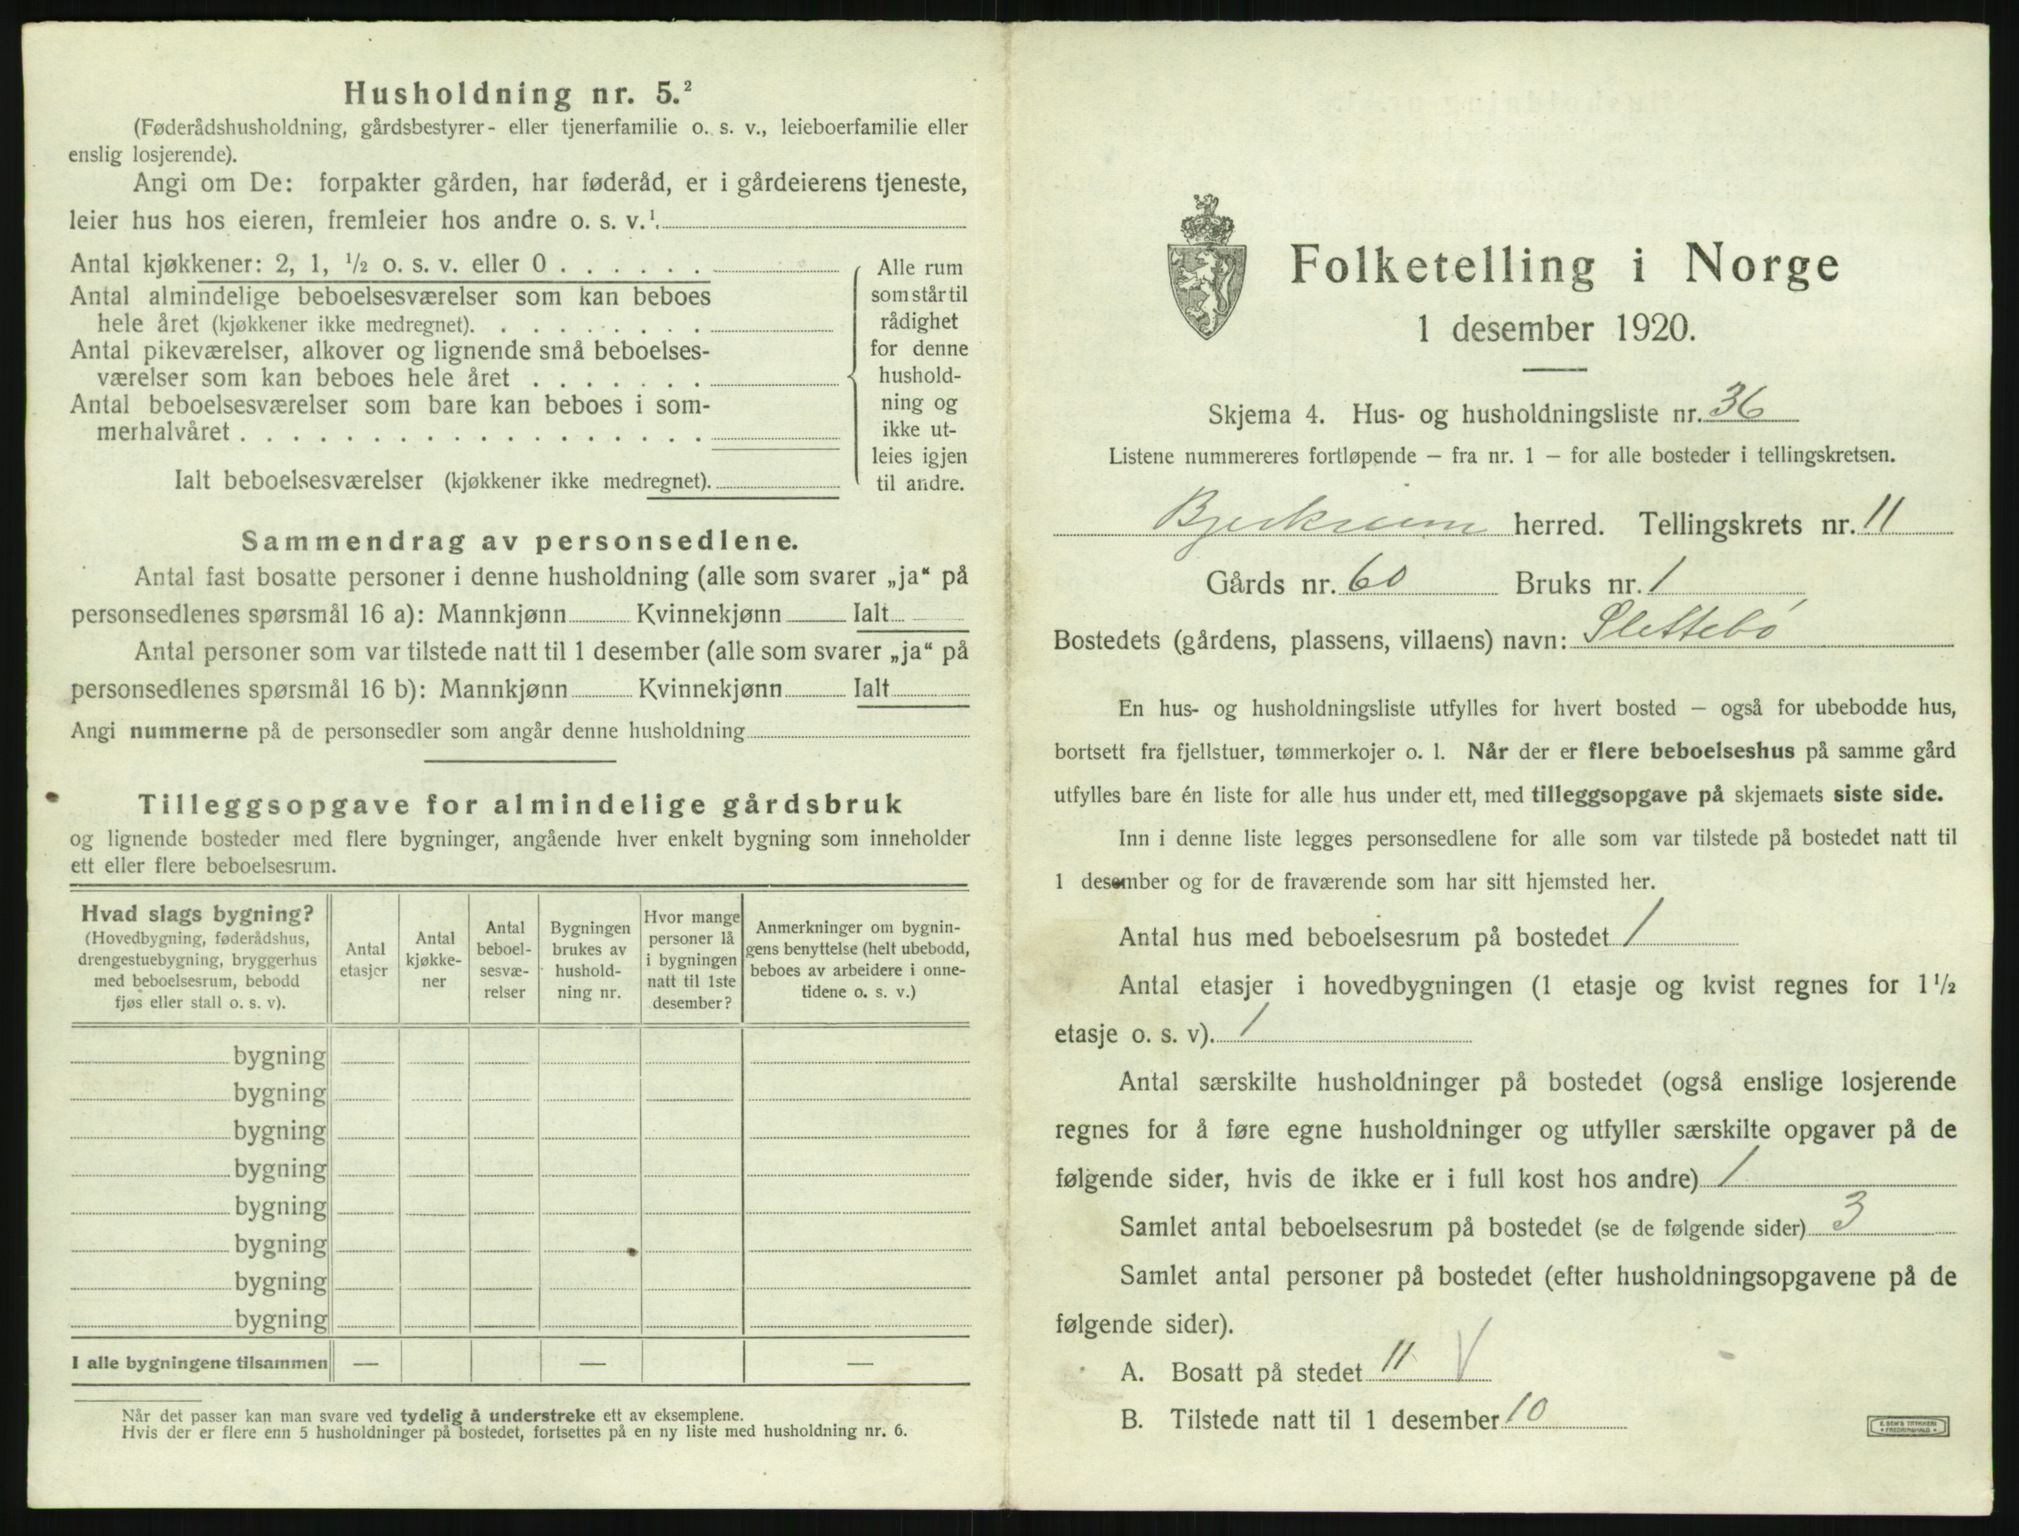 Husholdning nr. 5.²
(Føderådshusholdning, gårdsbestyrer- eller tjenerfamilie o. s. v., leieboerfamilie eller
enslig losjerende).
Angi om De: forpakter gården, har føderåd, er i gårdeierens tjeneste,
leier hus hos eieren, fremleier hos andre o. s. v.¹
Antal kjøkkener: 2, 1, ½ o. s. v. eller 0 . . . . . .
Antal almindelige beboelsesværelser som kan beboes
hele året (kjøkkener ikke medregnet). . . . . . . . .
Antal pikeværelser, alkover og lignende små beboelses-
værelser som kan beboes hele året . . . . . . .
Antal beboelsesværelser som bare kan beboes i som-
merhalvåret . . . . . . . . . . . . . . . . . .
Ialt beboelsesværelser (kjøkkener ikke medregnet).
Alle rum
som står til
rådighet
for denne
hushold-
ning og
ikke ut-
leies igjen
til andre.
Sammendrag av personsedlene.
Antal fast bosatte personer i denne husholdning (alle som svarer „ja“ på
personsedlenes spørsmål 16 a): Mannkjønn Kvinnekjønn Ialt
Antal personer som var tilstede natt til 1 desember (alle som svarer „ja“ på
personsedlenes spørsmål 16 b): Mannkjønn Kvinnekjønn Ialt
Angi nummerne på de personsedler som angår denne husholdning
Tilleggsopgave for almindelige gårdsbruk
og lignende bosteder med flere bygninger, angående hver enkelt bygning som inneholder
ett eller flere beboelsesrum.
Hvad slags bygning?
(Hovedbygning, føderådshus,
drengestuebygning, bryggerhus
med beboelsesrum, bebodd
fjøs eller stall o. s. v).
Antal
etasjer
Antal
kjøkke-
ner
Antal
beboel-
sesvæ-
relser
Bygningen
brukes av
hushold-
ning nr.
Hvor mange
personer lå
i bygningen
natt til 1ste
desember?
Anmerkninger om bygnin-
gens benyttelse (helt ubebodd,
beboes av arbeidere i onne-
tidene o. s. v.)
bygning
bygning
bygning
bygning
bygning
bygning
bygning
bygning
I alle bygningene tilsammen — — —
Når det passer kan man svare ved tydelig å understreke ett av eksemplene.
Hvis der er flere enn 5 husholdninger på bostedet, fortsettes på en ny liste med husholdning nr. 6.
Folketelling i Norge
1 desember 1920.
Skjema 4. Hus- og husholdningsliste nr. 36
Listene nummereres fortløpende – fra nr. 1 – for alle bosteder i tellingskretsen.
Bjerkreim herred. Tellingskrets nr. 11
Gårds nr. 60 Bruks nr. 1
Bostedets (gårdens, plassens, villaens) navn: Slettebö
En hus- og husholdningsliste utfylles for hvert bosted – også for ubebodde hus,
bortsett fra fjellstuer, tømmerkojer o. l. Når der er flere beboelseshus på samme gård
utfylles bare én liste for alle hus under ett, med tilleggsopgave på skjemaets siste side.
Inn i denne liste legges personsedlene for alle som var tilstede på bostedet natt til
1 desember og for de fraværende som har sitt hjemsted her.
Antal hus med beboelsesrum på bostedet 1
Antal etasjer i hovedbygningen (1 etasje og kvist regnes for 1½
etasje o. s. v). 1
Antal særskilte husholdninger på bostedet (også enslige losjerende
regnes for å føre egne husholdninger og utfyller særskilte opgaver på de
følgende sider, hvis de ikke er i full kost hos andre) 1
Samlet antal beboelsesrum på bostedet (se de følgende sider) 3
Samlet antal personer på bostedet (efter husholdningsopgavene på de
følgende sider).
A. Bosatt på stedet 11 V
B. Tilstede natt til 1 desember 10
E. SEM'S TRYKKERI
FREDRIKSHALD